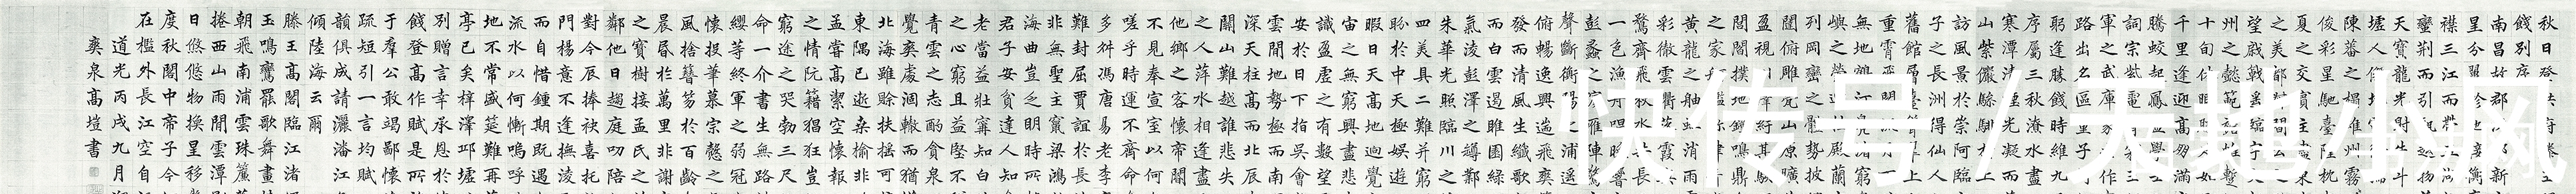 秋日登洪府滕
餞別序
南昌故郡洪都新
星分翼軫地接衡
襟三江而帶五湖
蠻荊而引甌越物
天寶龍光射牛斗
墟人傑地靈徐孺
陳蕃之榻雄州霧
俊彩星馳臺隍枕
夏之交賓主盡東
之美都督閻公之
望棨戟遙臨宇文
州之懿範襜帷暫
十旬休暇勝友如
千里逢迎高朋滿
騰蛟起鳳孟學士
詞宗紫電清霜王
軍之武庫家君作
路出名區童子何
躬逢勝餞時維九
序屬三秋潦水盡
寒潭清煙光凝而
山紫儼驂騑於上
訪風景於崇阿臨
子之長洲得仙人
舊館層巒聳翠上
重霄飛閣流丹下
無地鶴汀鳧渚窮
嶼之縈迴桂殿蘭
列岡巒之體勢披
闥俯雕甍山原曠
盈視川澤紆其駭
閭閻撲地鐘鳴鼎
之家舸艦彌津青
黃龍之舳虹消雨
彩徹雲衢落霞與
鶩齊飛秋水共長
一色漁舟唱晚響
彭蠡之濱雁陣驚
聲斷衡陽之浦遙
俯暢逸興遄飛爽
發而清風生纖歌
而白雲遏睢園綠
氣淩彭澤之樽鄴
朱華光照臨川之
四美具二難并窮
盼於中天極娛遊
暇日天高地迥覺
宙之無窮興盡悲
識盈虛之有數望
安於日下指吳會
雲間地勢極而南
深天柱高而北辰
關山難越誰悲失
之人萍水相逢盡
他鄉之客懷帝閽
不見奉宣室以何
嗟乎時運不齊命
多舛馮唐易老李
難封屈賈誼於長
非無聖主竄梁鴻
海曲豈乏明時所
君子安貧達人知
老當益壯甯知白
之心窮且益堅不
青雲之志酌貪泉
覺爽處涸轍而猶
北海雖賒扶搖可
東隅已逝桑榆非
孟嘗高潔空懷報
之情阮籍猖狂豈
窮途之哭勃三尺
命一介書生無路
纓等終軍之弱冠
懷投筆慕宗愨之
風捨簪笏於百齡
晨昏於萬里非謝
之寶樹接孟氏之
鄰他日趨庭叨陪
對今辰捧袂喜托
門楊意不逢撫淩
而自惜鍾期既遇
流水以何慚嗚呼
地不常盛筵難再
亭已矣梓澤邱墟
別贈言幸承恩於
餞登高作賦是所
于羣公敢竭鄙懷
疏短引一言均賦
韻俱成請灑潘江
傾陸海云爾
滕王高閣臨江渚
玉鳴鸞罷歌舞畫
朝飛南浦雲珠簾
捲西山雨閒雲潭影
日悠悠物換星移
度秋閣中帝子今
在檻外長江空自
道光丙戌九月朔
奕泉高塏書
快传号/